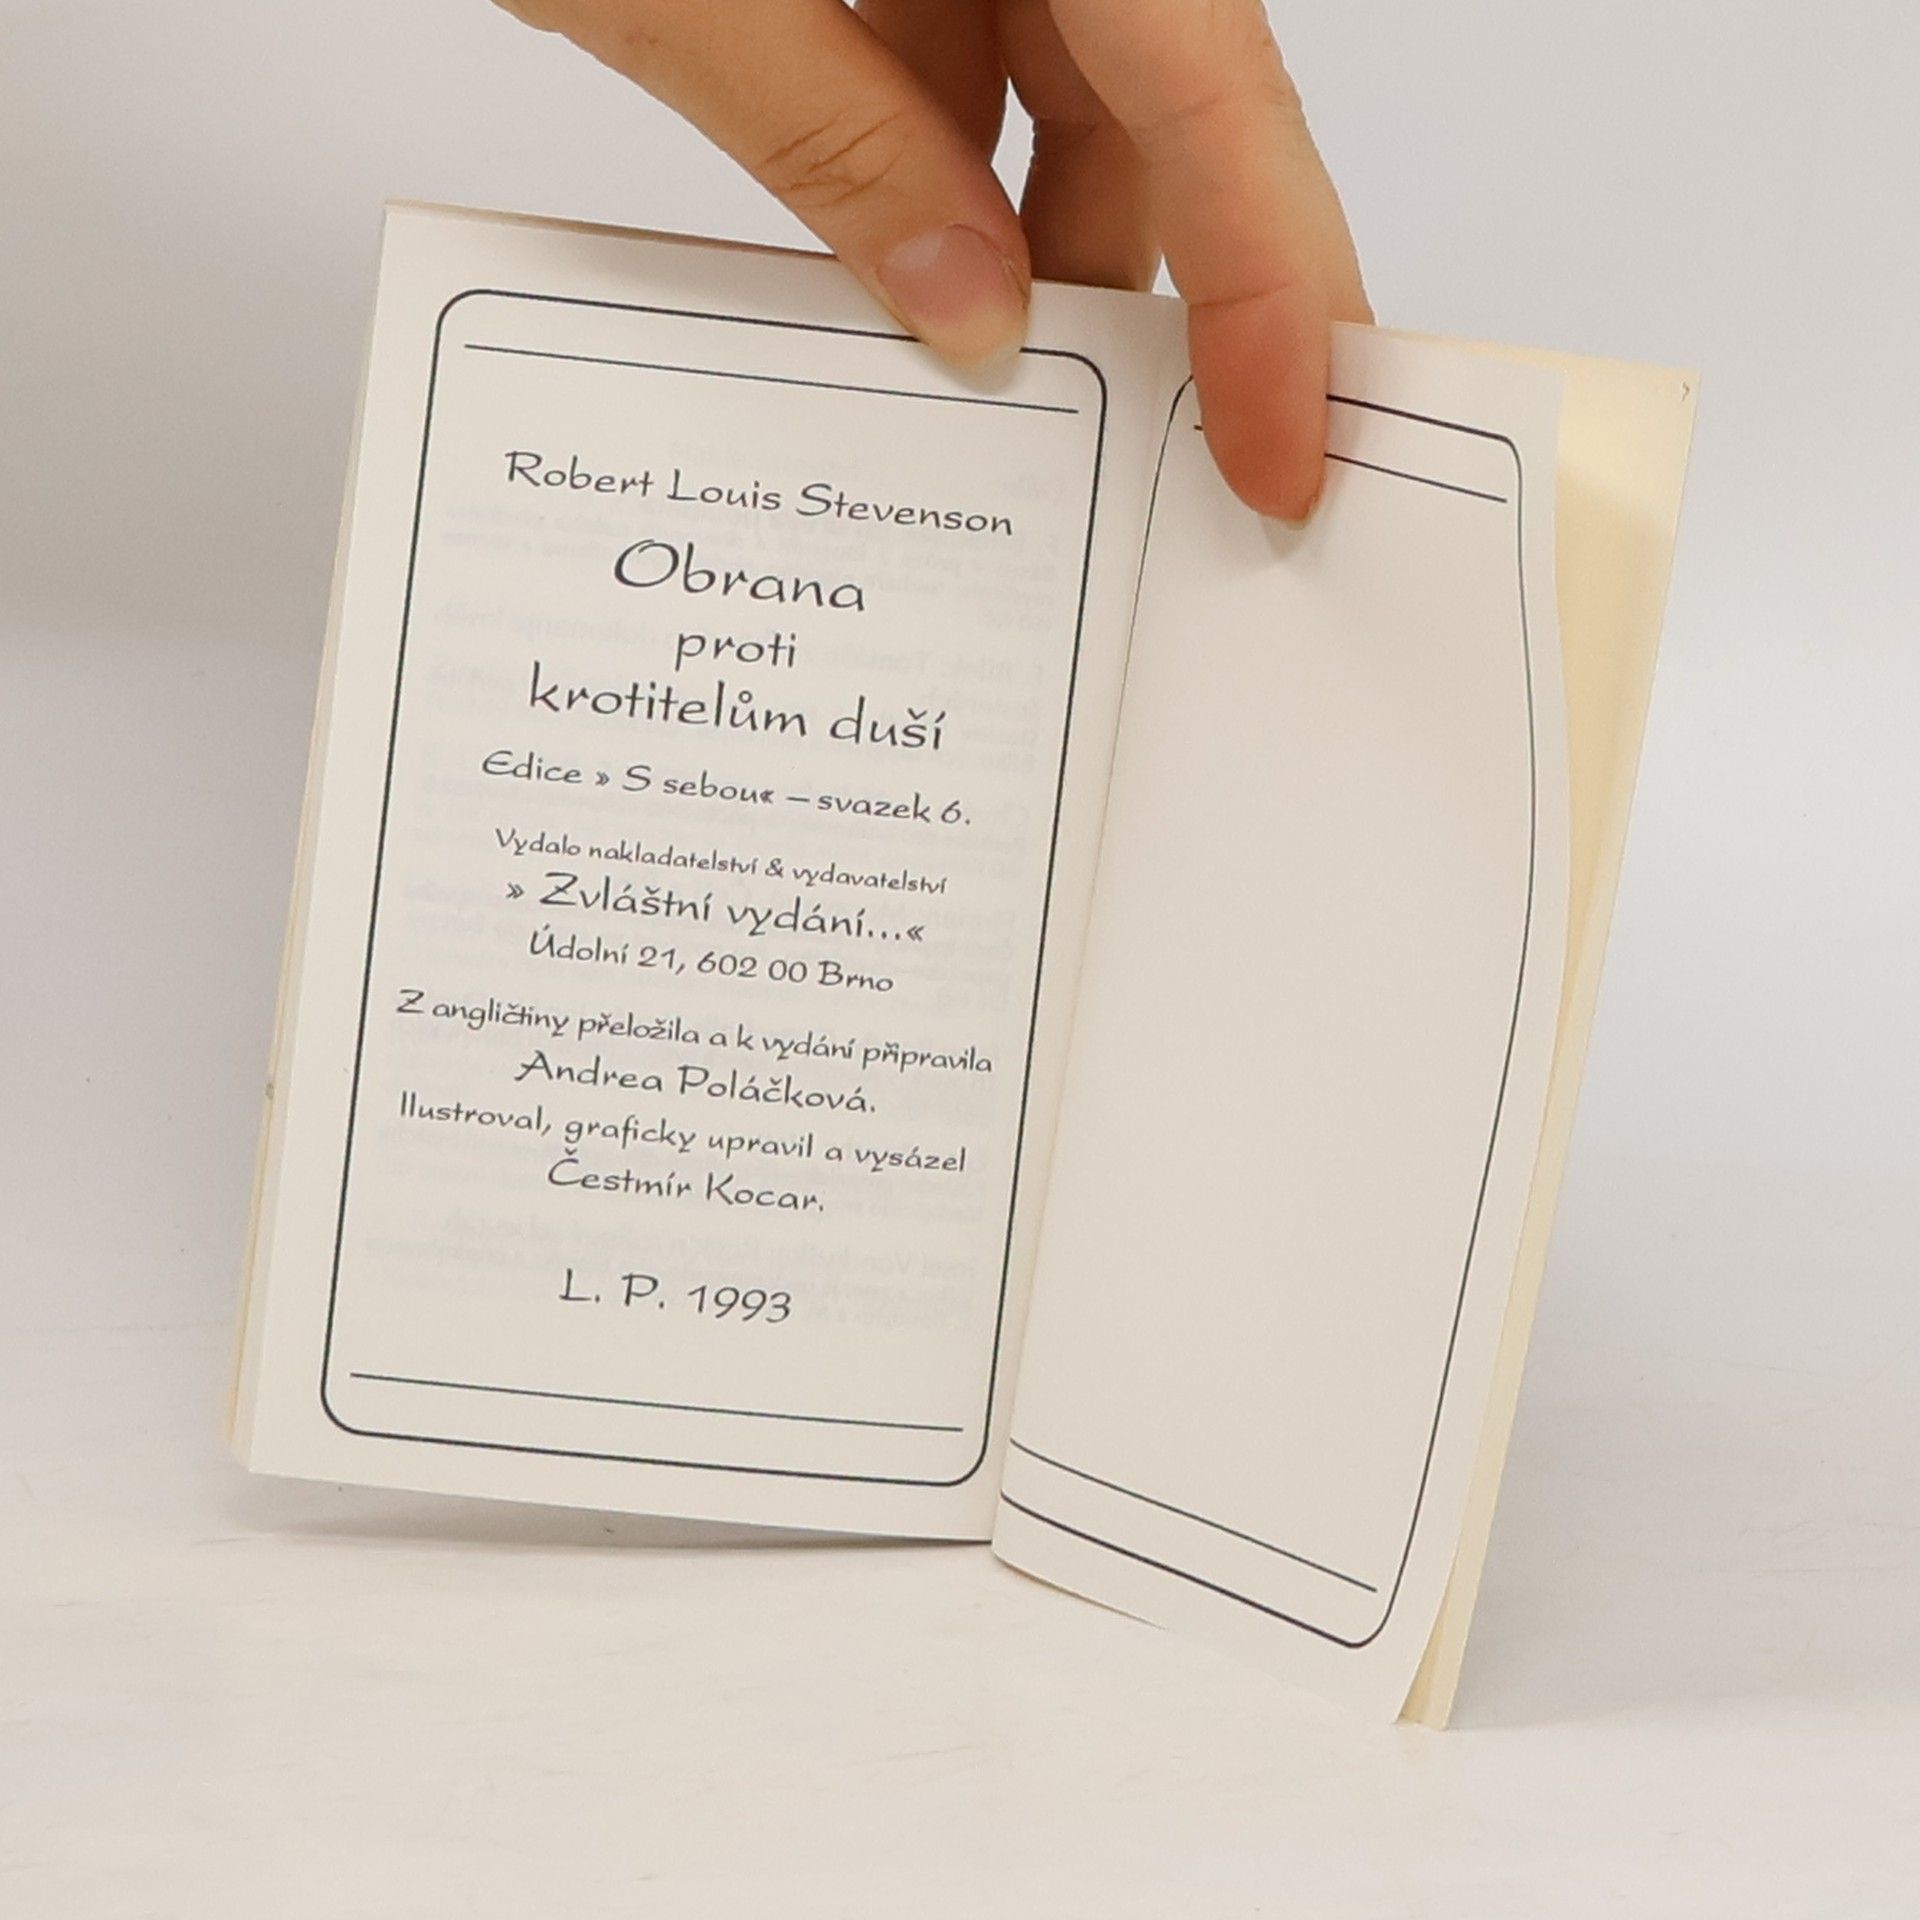 Robert Louis Stevenson
Obrana
proti
krotitelům duší
Edice » S sebou« – svazek 6.
Vydalo nakladatelství & vydavatelství
» Zvláštní vydání...«
Údolní 21, 602 00 Brno
Z angličtiny přeložila a k vydání připravila
Andrea Poláčková.
Ilustroval, graficky upravil a vysázel
Čestmír Kocar.
L. P. 1993